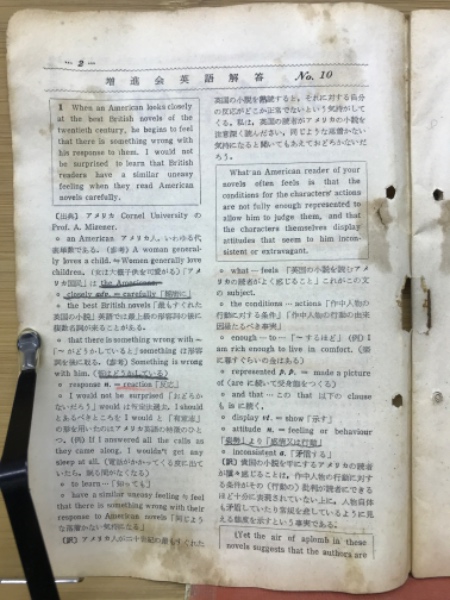 … 2 …
増進会英語解答 No. 10
1 When an American looks closely
at the best British novels of the
twentieth century, he begins to feel
that there is something wrong with
his response to them. I would not
be surprised to learn that British
readers have a similar uneasy
feeling when they read American
novels carefully.
【出典】 アメリカ Cornel University の
Prof. A. Mizener.
o an American アメリカ人。いわゆる代
表単数である。(参考) A woman general-
ly loves a child. = Women generally love
children.
the American.
o closely adv. = carefully「精密に」
o the best British novels「最もすぐれた英
o that there is something wrong with —
を後に取る。(参考) Something is wrong
with him.
o response n. = reaction「反応」
o I would not be surprised「おどろか
ないだろう」would は仮定法過去。I should
とあるべきところを I would と「有意志」
の形を用いたのはアメリカ英語の特徴のひと
つ。(例) If I answered all the calls as
they came along, I wouldn't get any
sleep at all.
o to learn…「知っても」
o have a similar uneasy feeling = feel
that there is something wrong with their
response to American novels「同じよう
な落着かない気持になる」
【訳】 アメリカ人が二十世紀の最もすぐれた
英国の小説を熟読すると、それに対する自分
の反応がどこか正常でないという気持がして
くる。私は、英国の読者がアメリカの小説を
注意深く読んださい、同じような落着かない
気持になると聞いてもあえておどろかないだ
ろう。
What an American reader of your
novels often feels is that the
conditions for the characters' actions
are not fully enough represented to
allow him to judge them, and that
the characters themselves display
attitudes that seem to him incon-
sistent or extravagant.
o what … feels「英国の小説を読むアメ
リカの読者がよく感じること」これがこの文
の subject.
o the conditions … actions「作中人物の
行動に対する条件」「作中人物の行動の由来
o enough … to …「…するほど」(例) I
am rich enough to live in comfort.
o represented p.p. = made a picture
of (are に続いて受身態をつくる)
o and that … この that 以下の clause
も is に続く。
o display vt. = show「示す」
o attitude n. = feeling or behaviour
o inconsistent a.「矛盾する」
【訳】 英国の小説を手にするアメリカの読者
が屡々感じることは、作中人物の行動に対す
る条件がその(行動の)批判が読者にできる
ほど十分に表現されていない上に、人物自体
も矛盾していたり常規を逸しているように見
える態度を示すという事実である。
(Yet the air of aplomb in these
novels suggests that the authors are